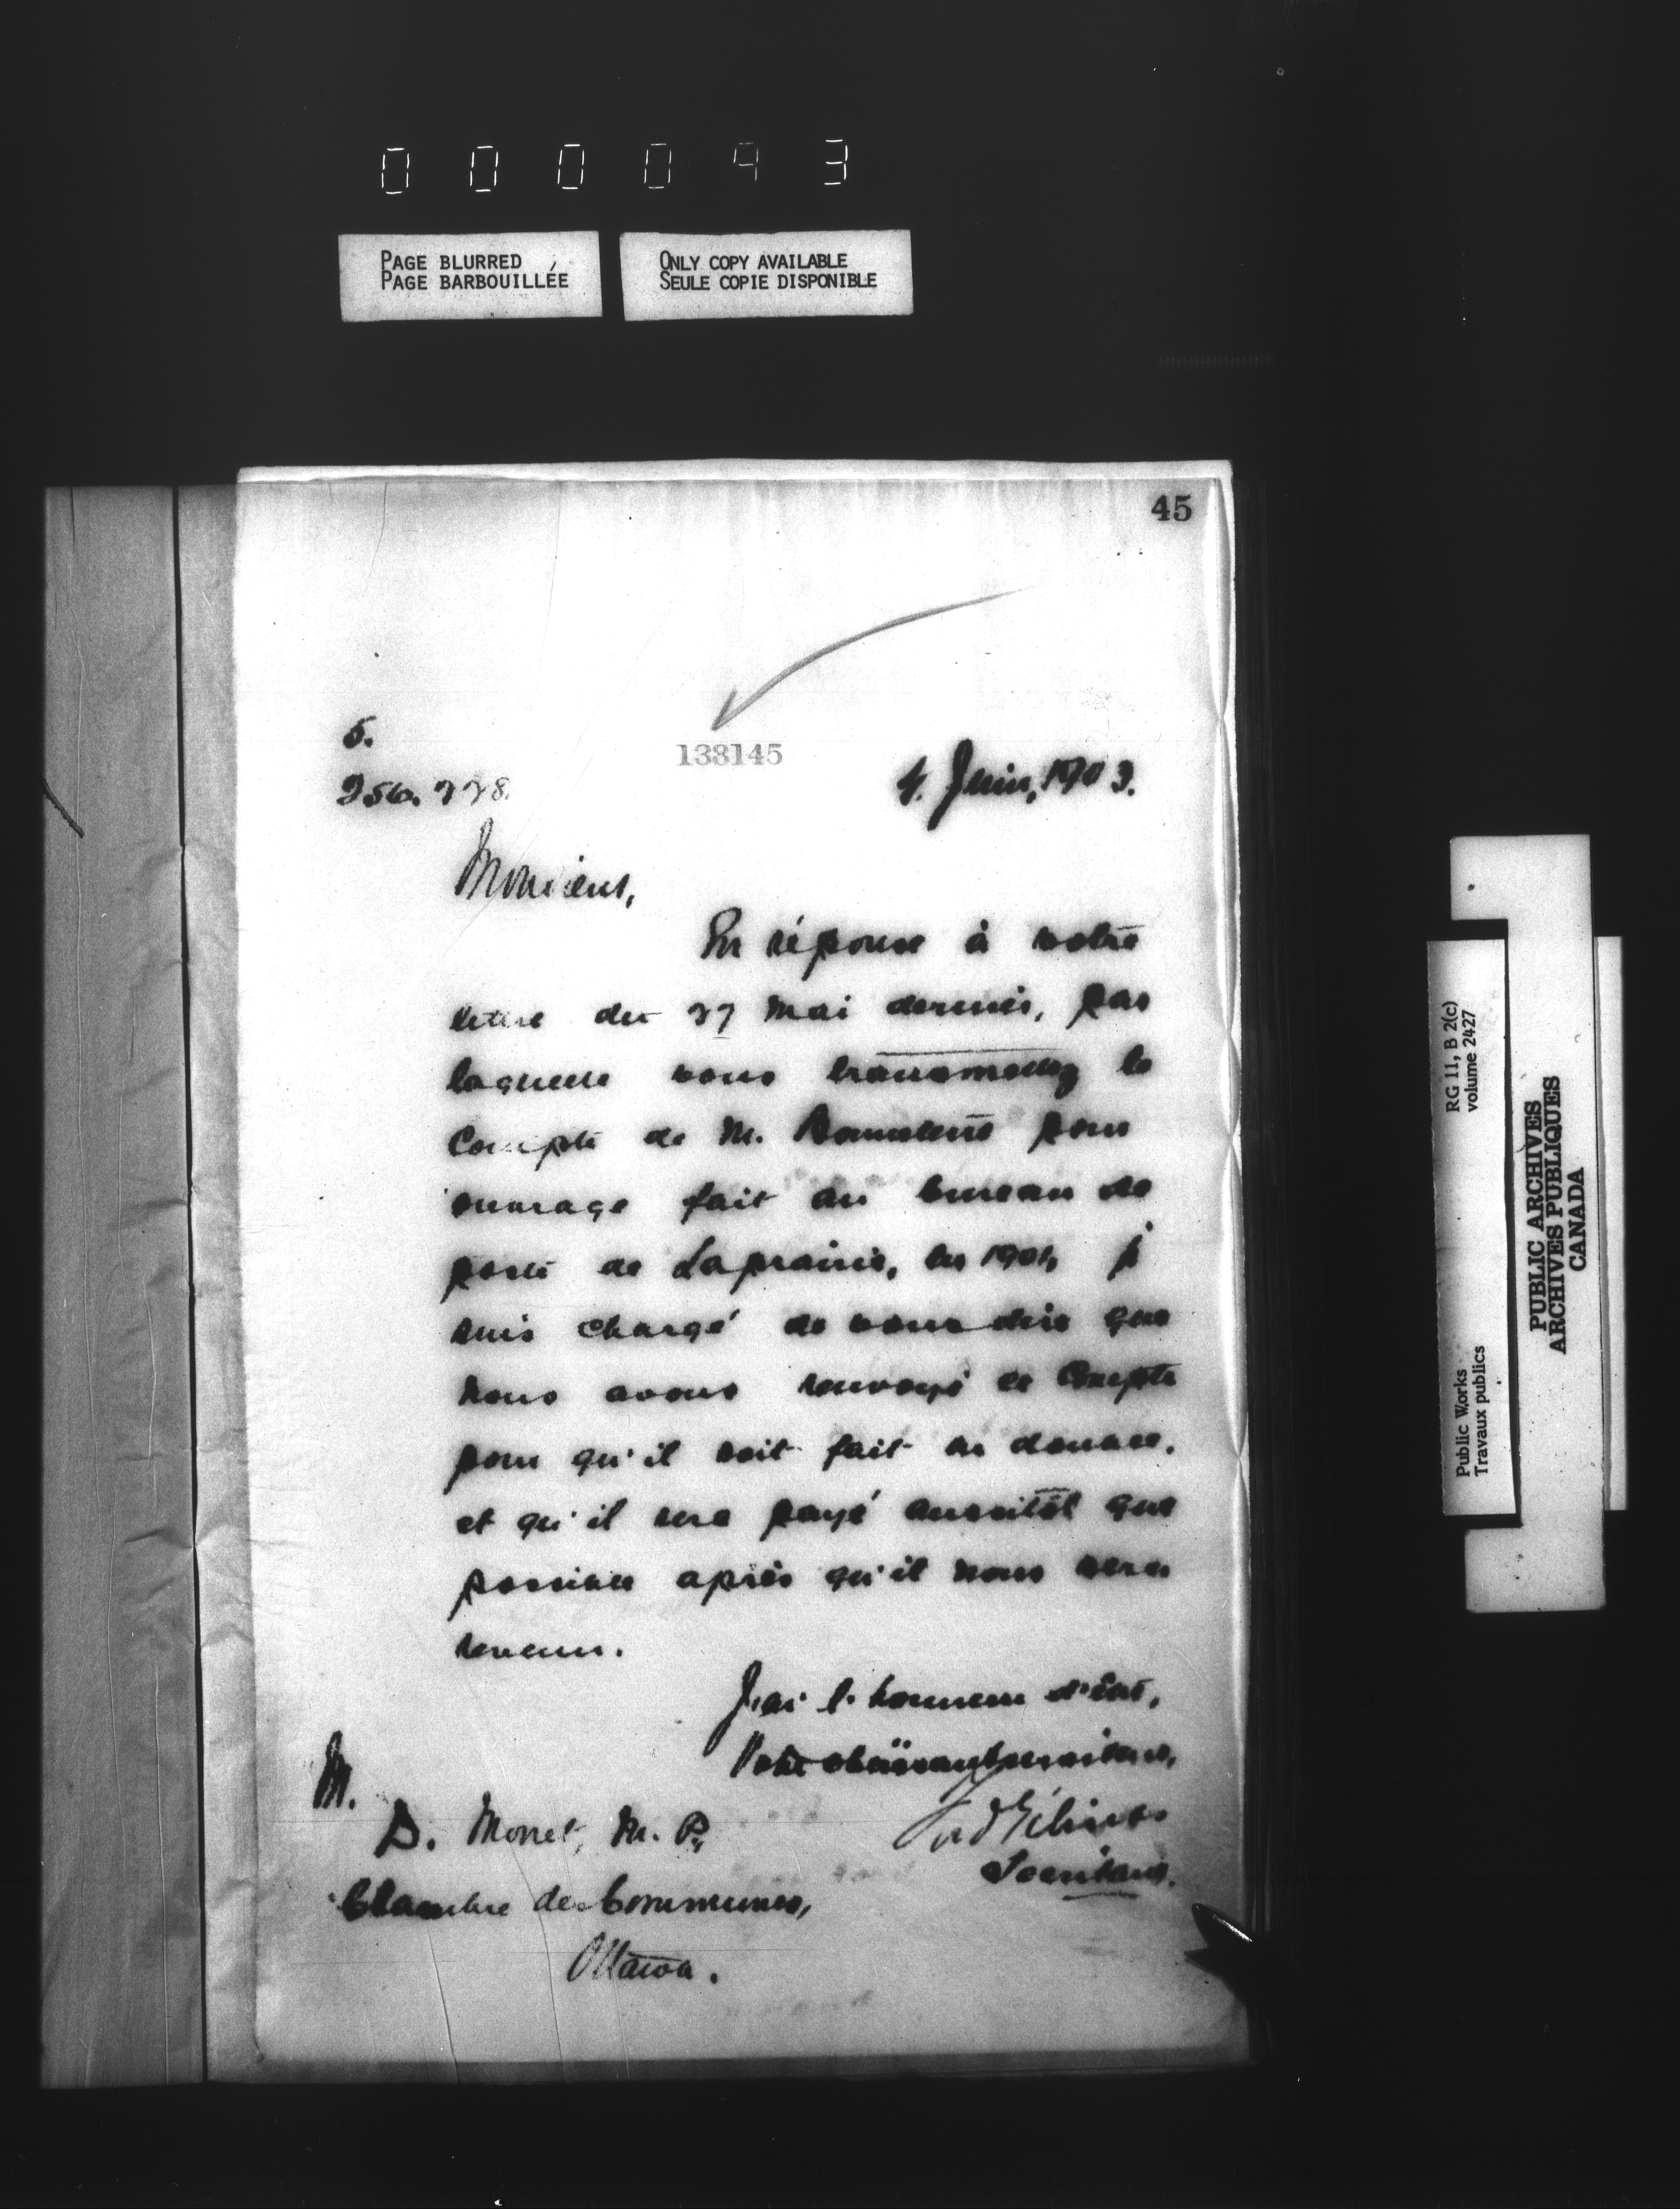 000093
PAGE BLURRED
PAGE BARBOUILLÉE
ONLY COPY AVAILABLE
SEULE COPIE DISPONIBLE
45
5.
138145
4. Juin, 1903.
Monsieur,
En réponse à votre
lettre du 27 Mai dernier, par
laquelle vous transmettez le
Compte de M. pour
ouvrage fait au bureau de
poste de Laprairie, en 1901, je
suis chargé de vous dire que
nous avons renvoyé ce Compte
pour qu'il soit fait en double,
et qu'il sera payé aussitôt que
possible après qu'il nous sera
revenu.
J'ai l'honneur d'être,
Votre obéissant serviteur,
Fred Gélinas
Secrétaire.
M.
D. Monet, M. P.,
Chambre des Communes,
Ottawa.
RG 11, B 2(c)
volume 2427
Public Works
Travaux publics
PUBLIC ARCHIVES
ARCHIVES PUBLIQUES
CANADA